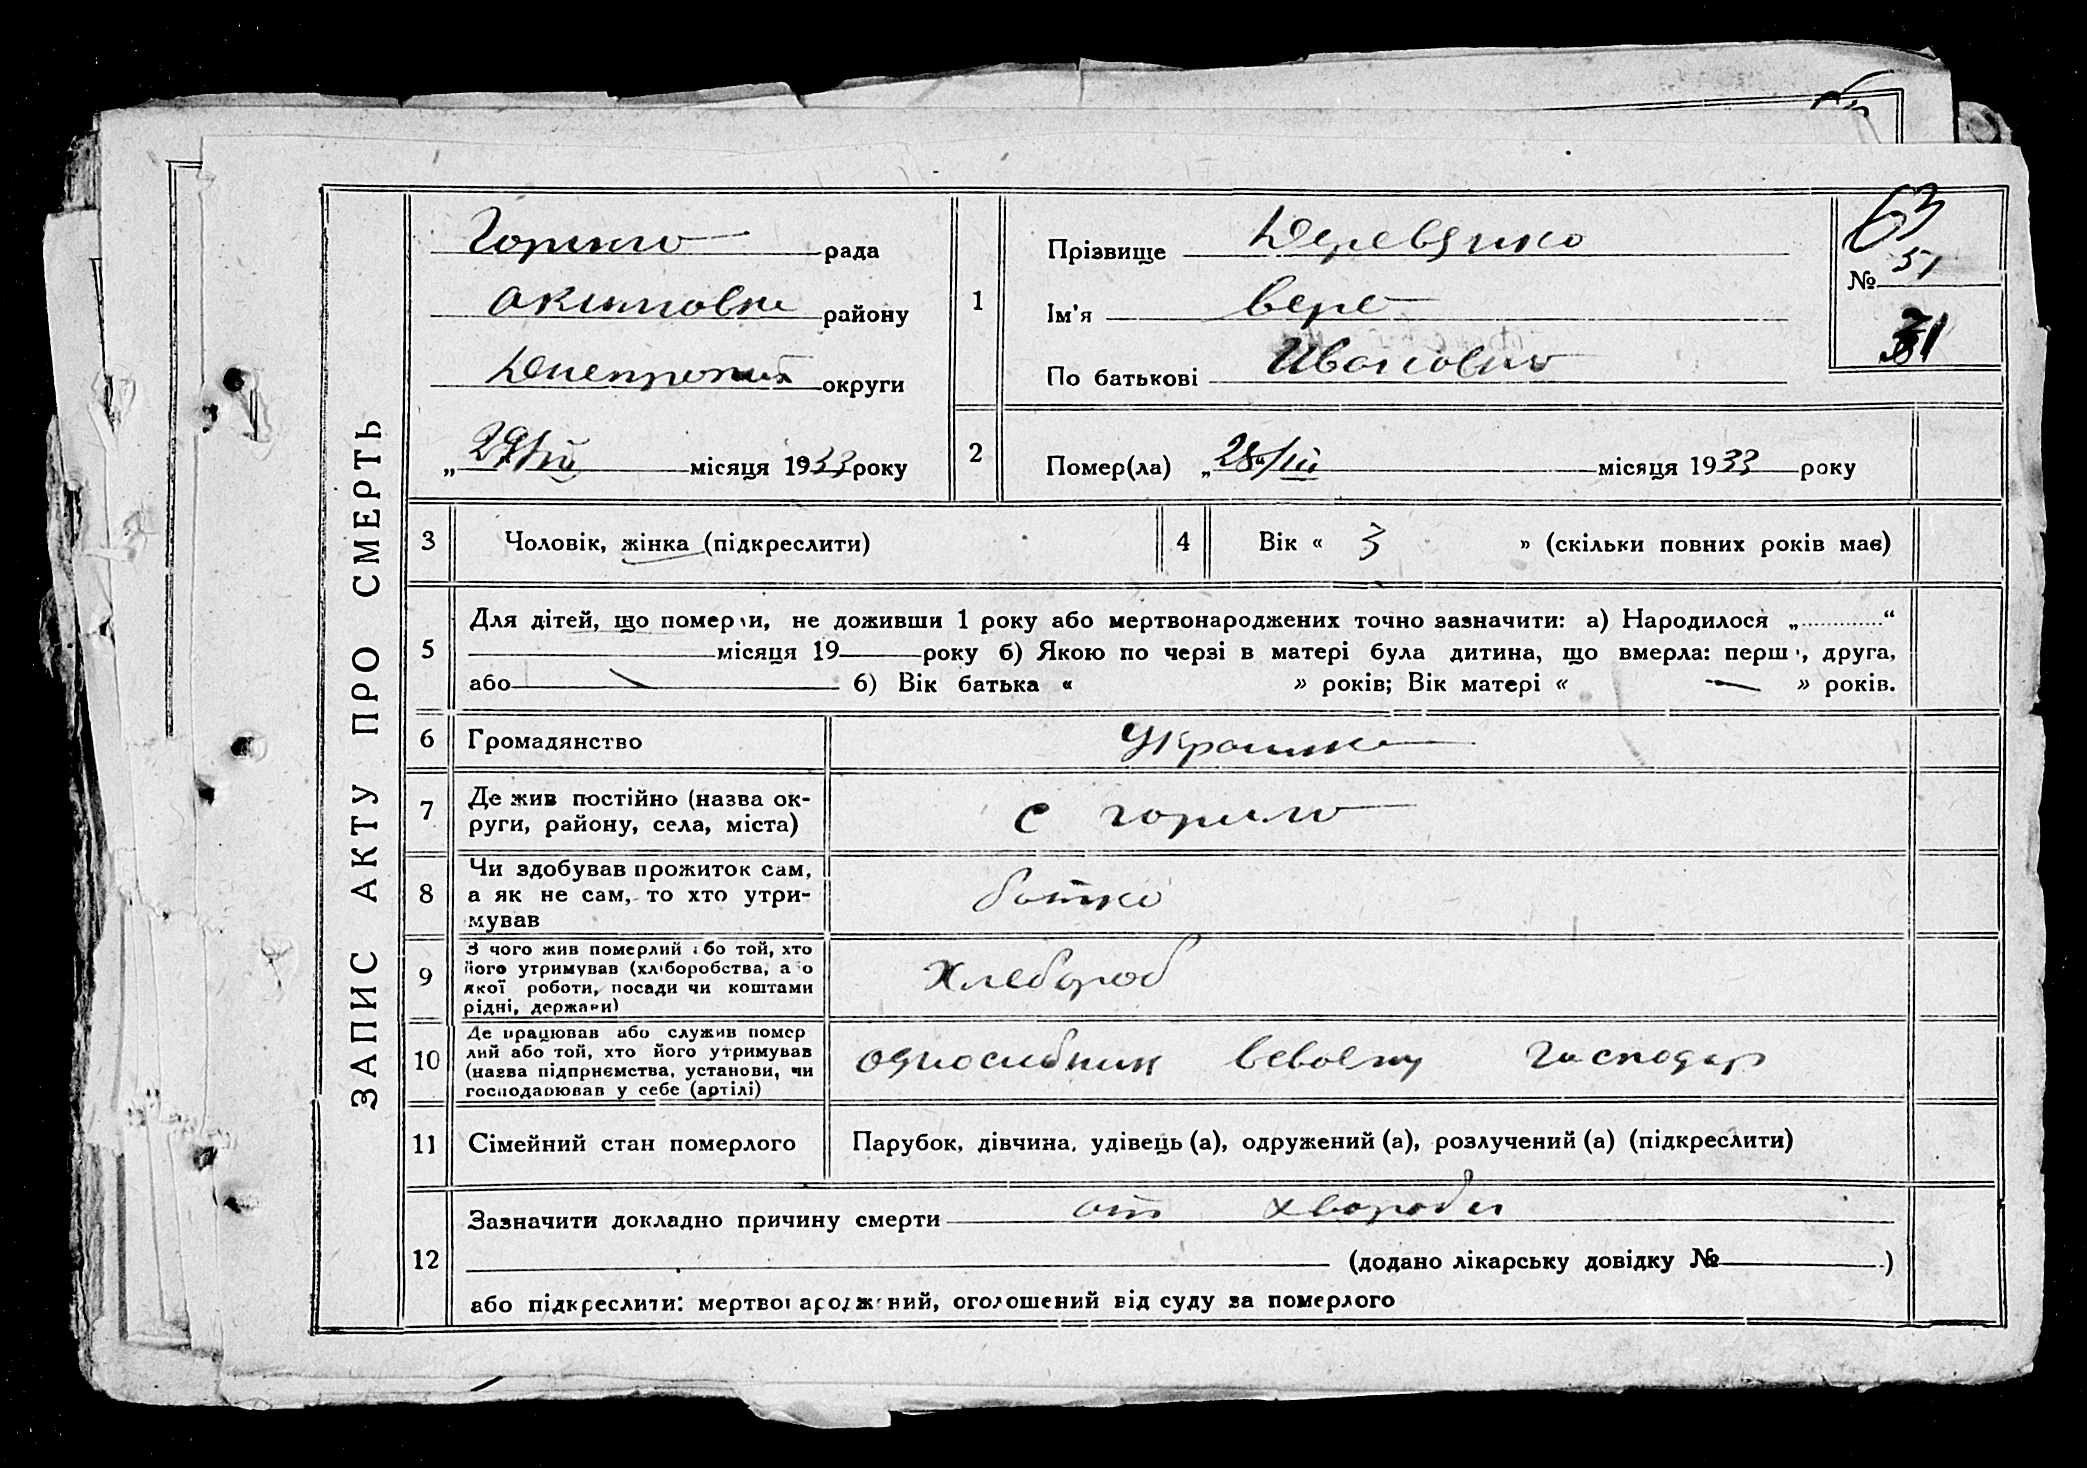 ЗАПИС АКТУ ПРО СМЕРТЬ
рада
району
округи
„ 29/III місяця 1933 року
1
Прізвище Деревянко
Ім'я Вера
По батькові Ивановна
63
№ 51
31
2
Помер(ла) „28/III місяця 1933 року
3
Чоловік, жінка (підкреслити)
4
Вік « 3 » (скільки повних років має)
5
Для дітей, що померли, не доживши 1 року або мертвонароджених точно зазначити: а) Народилося „ “
місяця 19 року б) Якою по черзі в матері була дитина, що вмерла: перша, друга,
або б) Вік батька « » років; Вік матері « — » років.
6
Громадянство
Украинка
7
Де жив постійно (назва ок-
руги, району, села, міста)
с
8
Чи здобував прожиток сам,
а як не сам, то хто утри-
мував
батко
9
З чого жив померлий або той, хто
його утримував (хліборобства, або
якої роботи, посади чи коштами
рідні, держави)
Хлебороб
10
Де працював або служив помер
лий або той, хто його утримував
(назва підприємства, установи, чи
господарював у себе (артілі)
односибник всвоему господар
11
Сімейний стан померлого
Парубок, дівчина, удівець (а), одружений (а), розлучений (а) (підкреслити)
12
Зазначити докладно причину смерти от хвороби
(додано лікарську довідку № )
або підкреслити: мертвонароджений, оголошений від суду за померлого